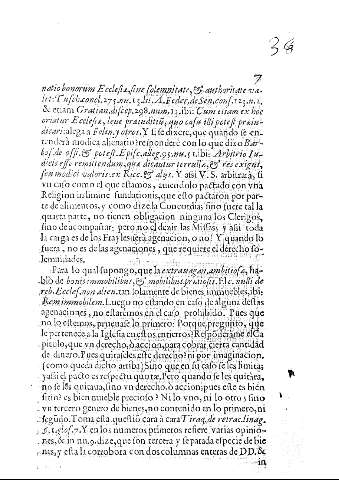 3
7
natio bonorum Ecclesæ, sine solemnitate, & authoritate va-
let: Tusch. concl. 275. nu. 13. lit. A. Feder. de Sen. conf. 123. n. 1,
& etiam Gratian. discep. 298. num. 13. ibi: Cum etiam ex hoc
oriatur Ecclesæ, leue præiuditiū, quo casu illi potest præiu-
dicari: alega a y otros. Y si se dixere, que quando se en-
tenderá modica alienatio? responderé con lo que dixo Bar-
bosa de off. & potest. Episc. alleg. 95. nu. 51. ibi: Arbitrio Iu-
dicis esse remittendum, qua distantur terrullæ, & res exigui,
seu modici valoris. ex Ricc. & alys. Y assi V. S. arbitrará, si
vn caso como el que estamos, auiendolo pactado con vna
Religion in limine fundationis, que esto pactaron por par-
te de alimentos, y como dize la Concordia: sino fuere tal la
quarta parte, no tienen obligacion ninguna los Clerigos,
sino de acompañar; pero no el dezir las Missas; y assi toda
la carga es de los Frayles será agenacion, o no? Y quando lo
fuera, no es de las agenaciones, que requiere el derecho so-
lemnidades.
Para lo qual supongo, que la extrauagan. ambitiosæ, ha-
blo de bonis immobilibus, & mobilibus pretiosis. Etc. nulli de
reb. Eccles. non alien. tan solamente de bienes inmuebles, ibi:
Rem immobilem. Luego no estando en caso de alguna destas
agenaciones, no estaremos en el caso prohibido. Pues que
no lo estemos, prueuase lo primero: Porque, pregunto, que
le pertenece a la Iglesia en estos entierros? Responderáme el Ca
pitulo, que vn derecho, ò accion, para cobrar cierta cantidad
de dinero. Pues quitasele este derecho? ni por imaginacion,
(como queda dicho arriba) Sino que en su caso se les limita;
ya si el pacto es respectu quartæ. Pero quando se les quitara,
no se les quitaua, sino vn derecho, ò accion: pues este es bien
sitio? es bien mueble precioso? Ni lo vno, ni lo otro; sino
vn tercero genero de bienes, no contenido en lo primero, ni
segūdo. Toma esta questiō cara à cara Tiraq. de retract. linag.
§. 1. glos. 7. Y en los numeros primeros refiere varias opinio-
nes, & in nn. 9. dize, que son tercera y separada especie de bie
nes, y esta la corrobora con dos columnas enteras de DD. &
in